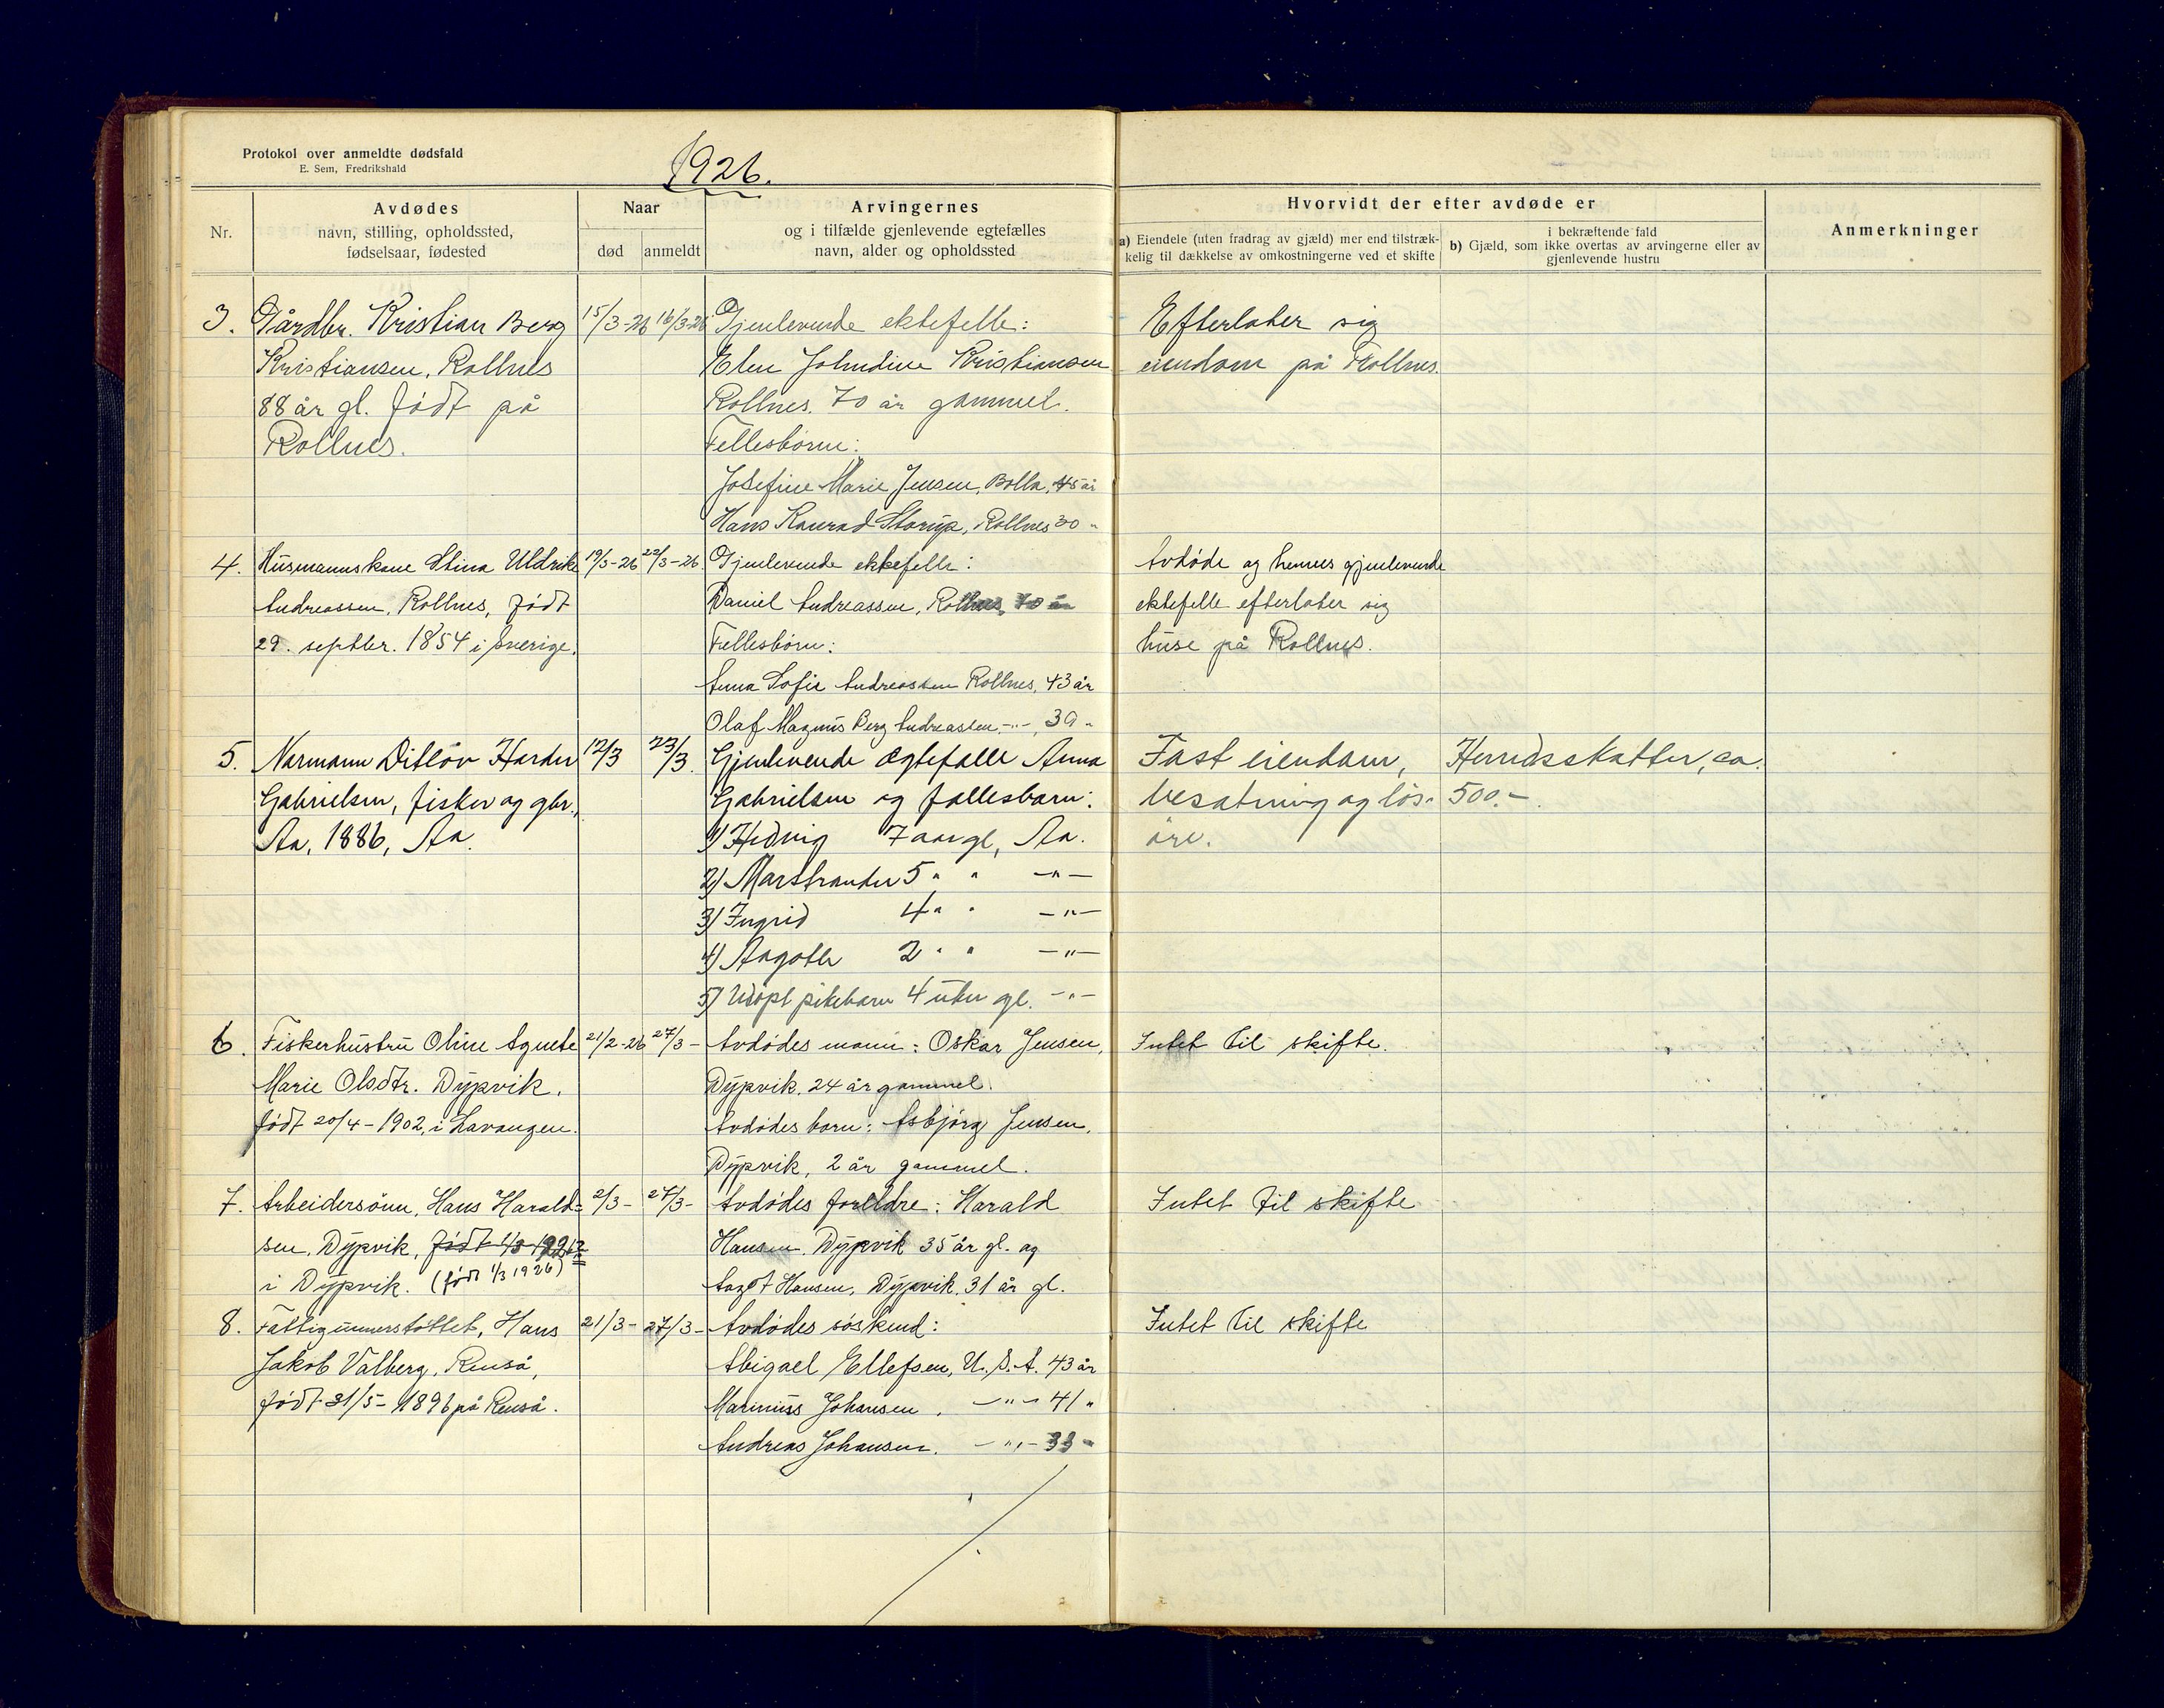 Protokol over anmeldte dødsfald
E. Sem, Fredrikshald
1926.
Nr.
Avdødes
navn, stilling, opholdssted,
fødselsaar, fødested
Naar
død
anmeldt
Arvingernes
og i tilfælde gjenlevende egtefælles
navn, alder og opholdssted
Hvorvidt der efter avdøde er
a) Eiendele (uten fradrag av gjæld) mer end tilstræk-
kelig til dækkelse av omkostningerne ved et skifte
i bekræftende fald
b) Gjæld, som ikke overtas av arvingerne eller av
gjenlevende hustru
Anmerkninger
3. Gårdbr. Kristian Berg
Kristiansen, Rollnes
88 år gl. født på
Rollnes.
15/3-26 16/3-26
Gjenlevende ektefelle:
Elen Johndine Kristiansen
Rollnes. 70 år gammel.
Fellesbørn:
Josefine Marie Jensen, Bolla, 45 år
Hans Konrad Storup, Rollnes 30 "
Efterlater sig
eiendom på Rollnes.
4. Husmannskone Stina Uldrike
Andreassen, Rollnes, født
29. septbr. 1854 i Sverige.
19/3-26 22/3-26.
Gjenlevende ektefelle:
Daniel Andreassen, Rollnes, 70 år
Fellesbørn:
Anna Sofie Andreassen Rollnes, 43 år
Olaf Magnus Berg Andreassen, -"- , 39 "
Avdøde og hennes gjenlevende
ektefelle efterlater sig
huse på Rollnes.
5. Normann Ditløv Harder
Gabrielsen, fisker og gbr.,
Aa, 1886, Aa.
12/3 23/3.
Gjenlevende ægtefælle Anna
Gabrielsen og fællesbarn:
1) Hedvig 7 aar gl, Aa.
2) Marstrander 5 " " -"-
3) Ingrid 4 " " -"-
4) Aagoth 2 " " -"-
5) Udøpt pikebarn 4 uker gl. -"-
Fast eiendom,
besætning og løs-
øre.
Herredsskatter, ca.
500.-
6. Fiskerhustru Oline Agnete
Marie Olsdtr. Dypvik,
født 20/4-1902, i Lavangen.
21/2-26 27/3-
Avdødes mann: Oskar Jensen,
Dypvik, 24 år gammel.
Avdødes barn: Asbjørg Jensen,
Dypvik, 2 år gammel.
Intet til skifte.
7. Arbeidersønn, Hans Harald-
sen, Dypvik, født 1/3 19
i Dypvik. (født 1/3 1926)
2/3- 27/3-
Avdødes foreldre: Harald
Hansen, Dypvik 35 år gl. og
Aagot Hansen, Dypvik, 31 år gl.
Intet til skifte
8. Fattigunnerstøttet, Hans
Jakob Valberg, Renså,
født 31/5-1896 på Renså.
21/3- 27/3-
Avdødes søskend:
Abigael Ellefsen, U.S.A. 43 år
Marinius Johansen, -"- 41 "
Andreas Johansen, -"- 33 "
Intet til skifte